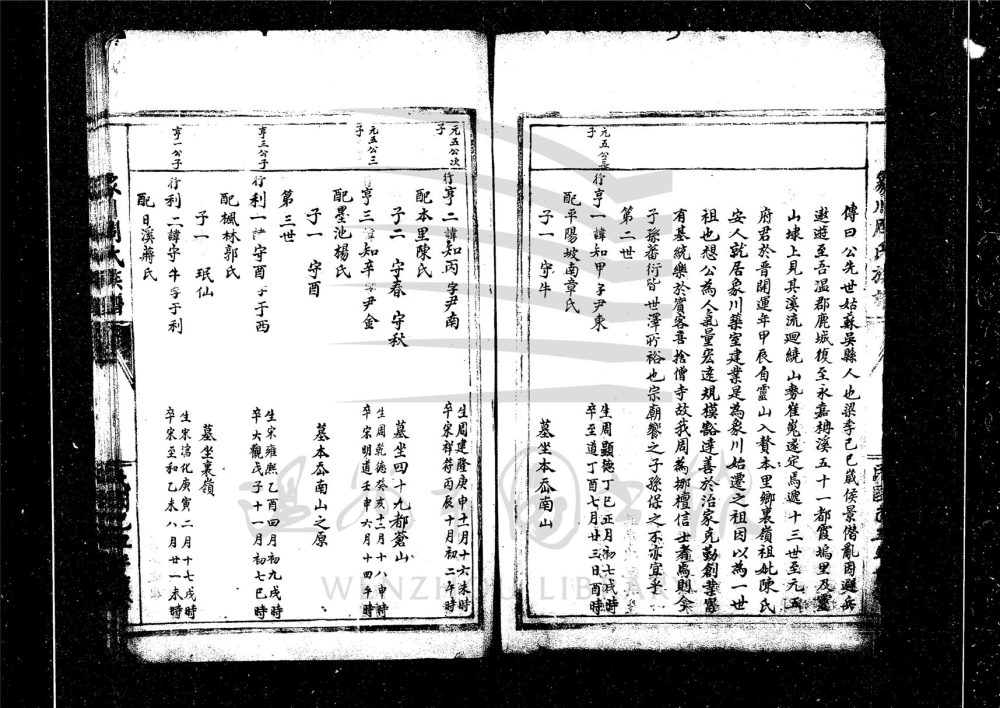 傳曰公先世姑蘇吳縣人也梁季己巳歲侯景僭亂因避兵
遨遊至吾溫郡鹿城復至永嘉梅溪五十一都霞塢里及靈
山埭上見其溪流迴繞山勢崔嵬遂定焉遞十三世至元五
府君於晉開運年甲辰自靈山入贅本里鄉裏嶺祖妣陳氏
安人就居象川築室建業是為象川始遷之祖因以為一世
祖也想公為人氣量宏遠規模豁達善於治家克勤創業嘗
有基統樂於賓客喜捨僧寺故我周為挪檀信士耆焉則全
子孫蕃衍皆世澤所裕也宗廟饗之子孫保之不亦宜乎
第二世
元五公長子
行亨一諱知甲字尹東
生周顯德丁巳正月初七戌時
卒至道丁酉七月廿三日酉時
配平陽坡南章氏
子一 守牛
墓坐本岙南山
元五公次子
行亨二諱知丙字尹南
生周建隆庚申十一月十六未時
卒宋祥符丙辰十月初二午時
配本里陳氏
子二 守春 守秋
墓坐四十九都蒼山
元五公三子
亨三諱知辛字尹金
生周乾德癸亥十二月十八申時
卒宋明道壬申六月十四午時
配墨池楊氏
子一 守酉
墓本岙南山之原
第三世
亨三公子
行利一諱守酉字于西
生宋雍熙乙酉四月初九戌時
卒大觀戊子十一月初七巳時
配楓林郭氏
子一 珉仙
墓坐裏嶺
亨一公子
行利二諱守牛字于利
生宋淳化庚寅二月十七戌時
卒宋至和乙未八月廿一未時
配日溪蔣氏
WENZHOU LIBRARY